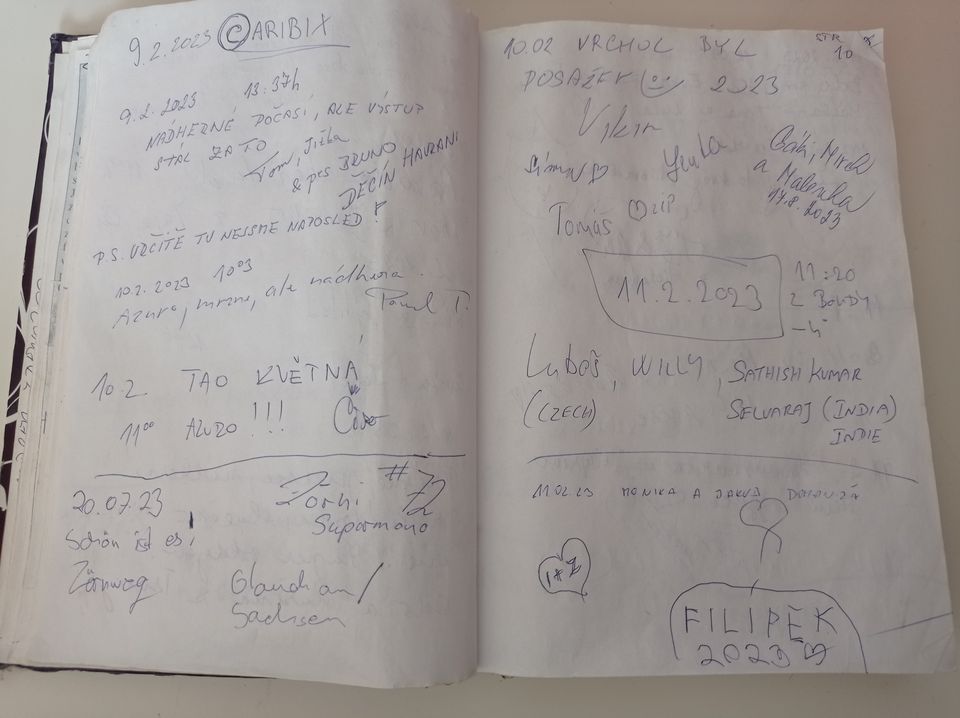 9.2.2023 ©ARIBIX
9.2.2023 13:37h
NÁDHERNÉ POČASÍ, ALE VÝSTUP
STÁL ZA TO
Tom, Jitka
& pes BRUNO
DĚČÍN HAVRANI
P.S. URČITĚ TU NEJSME NAPOSLED!
10.2.2023 10:03
Azuro, mrzne, ale nádhera.
Pavel T.
10.2. TAO KVĚTNA
11⁰⁰ AZURO !!!
20.07.23
#72
Supermono
Schön ist es!
Glauchau/
Sachsen
STR
10
10.02 VRCHOL BYL
POSAŽEN 2023
a Malenka
17.8.2023
Tomáš
11.2.2023
11:20
2 BOUDY
Luboš, WILLY, SATHISH KUMAR
(CZECH) SELVARAJ (INDIA)
INDIE
11.02.23 MONIKA A JAKUB
FILIPEK
2023 ♡